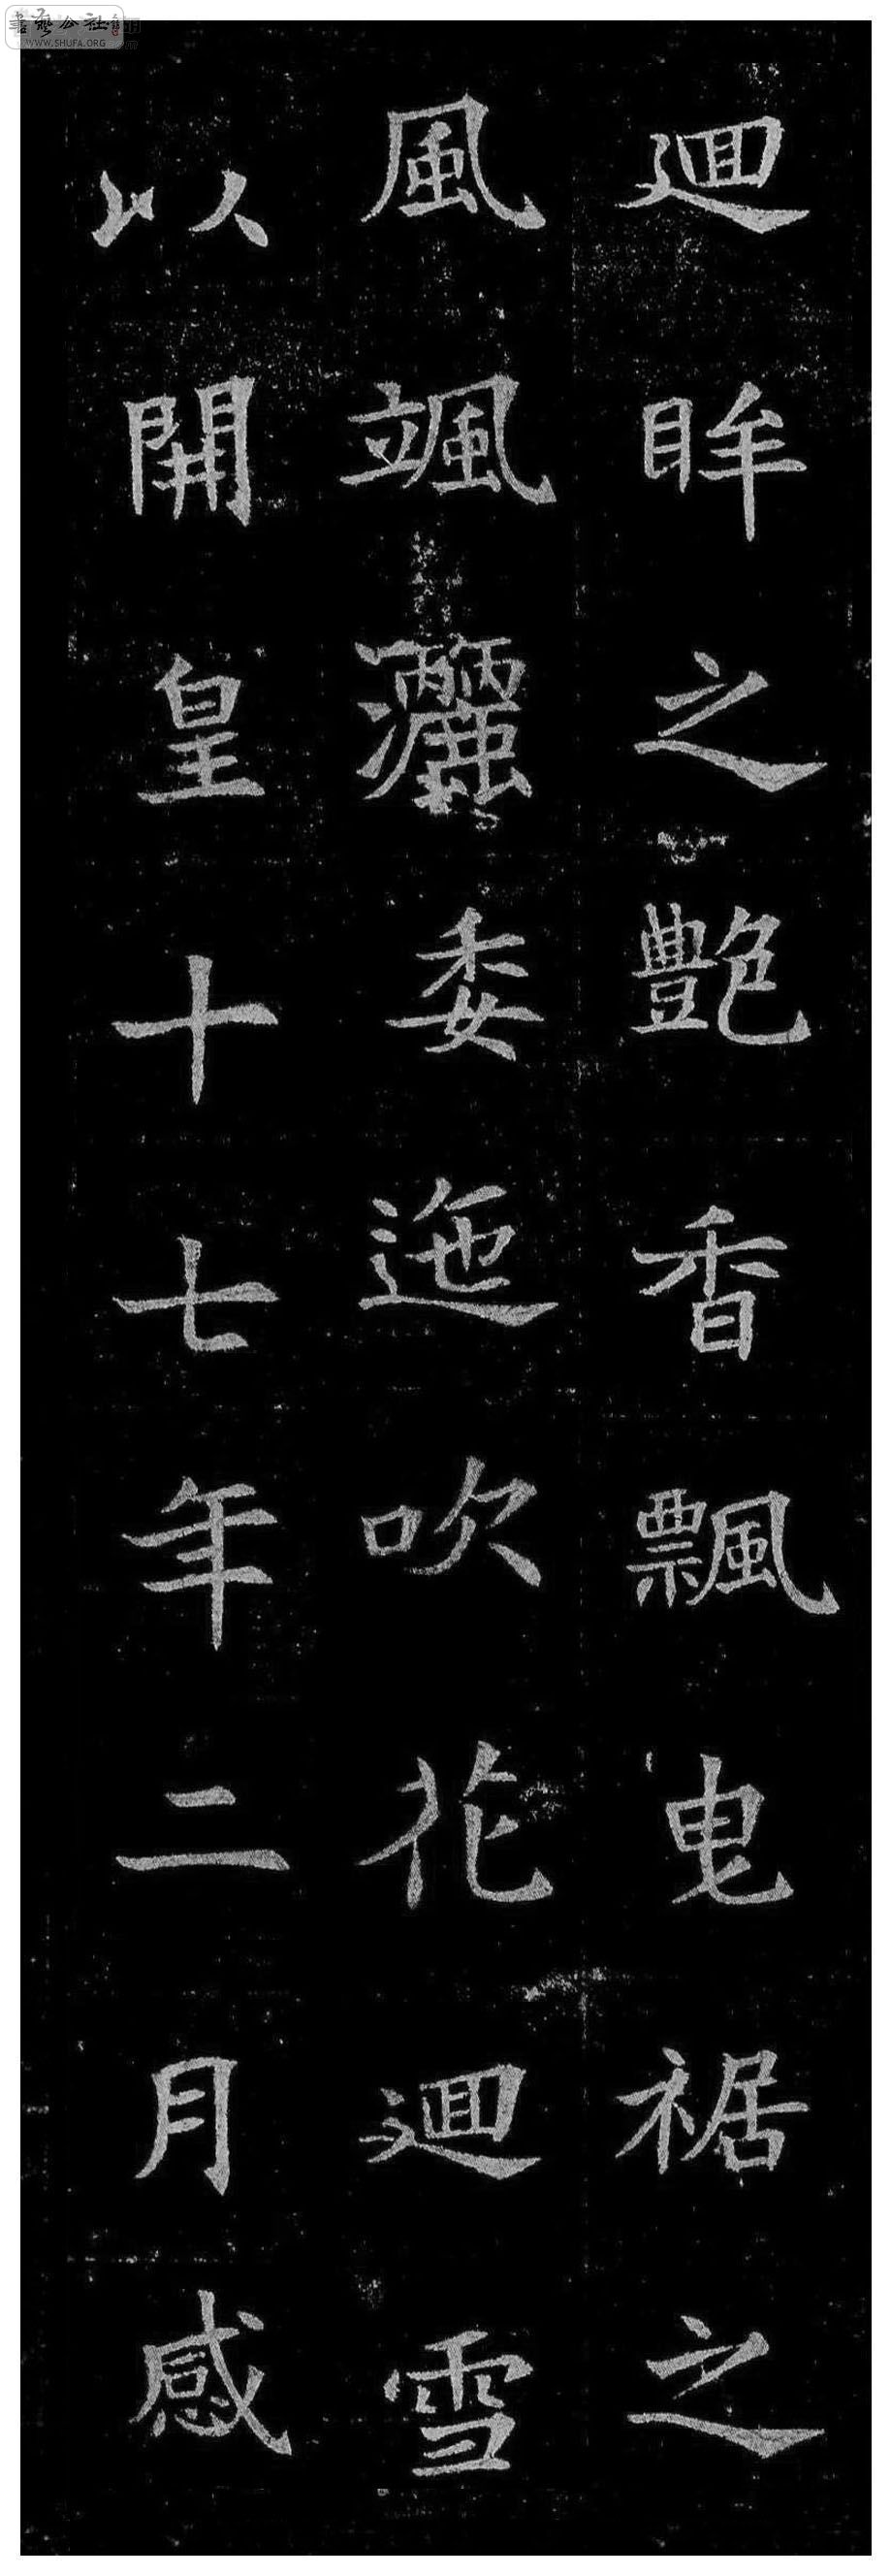 迴眸之艷香飄曳裾之
風颯灑委迤吹花迴雪
以開皇十七年二月感
書藝公社
WWW.SHUFA.ORG